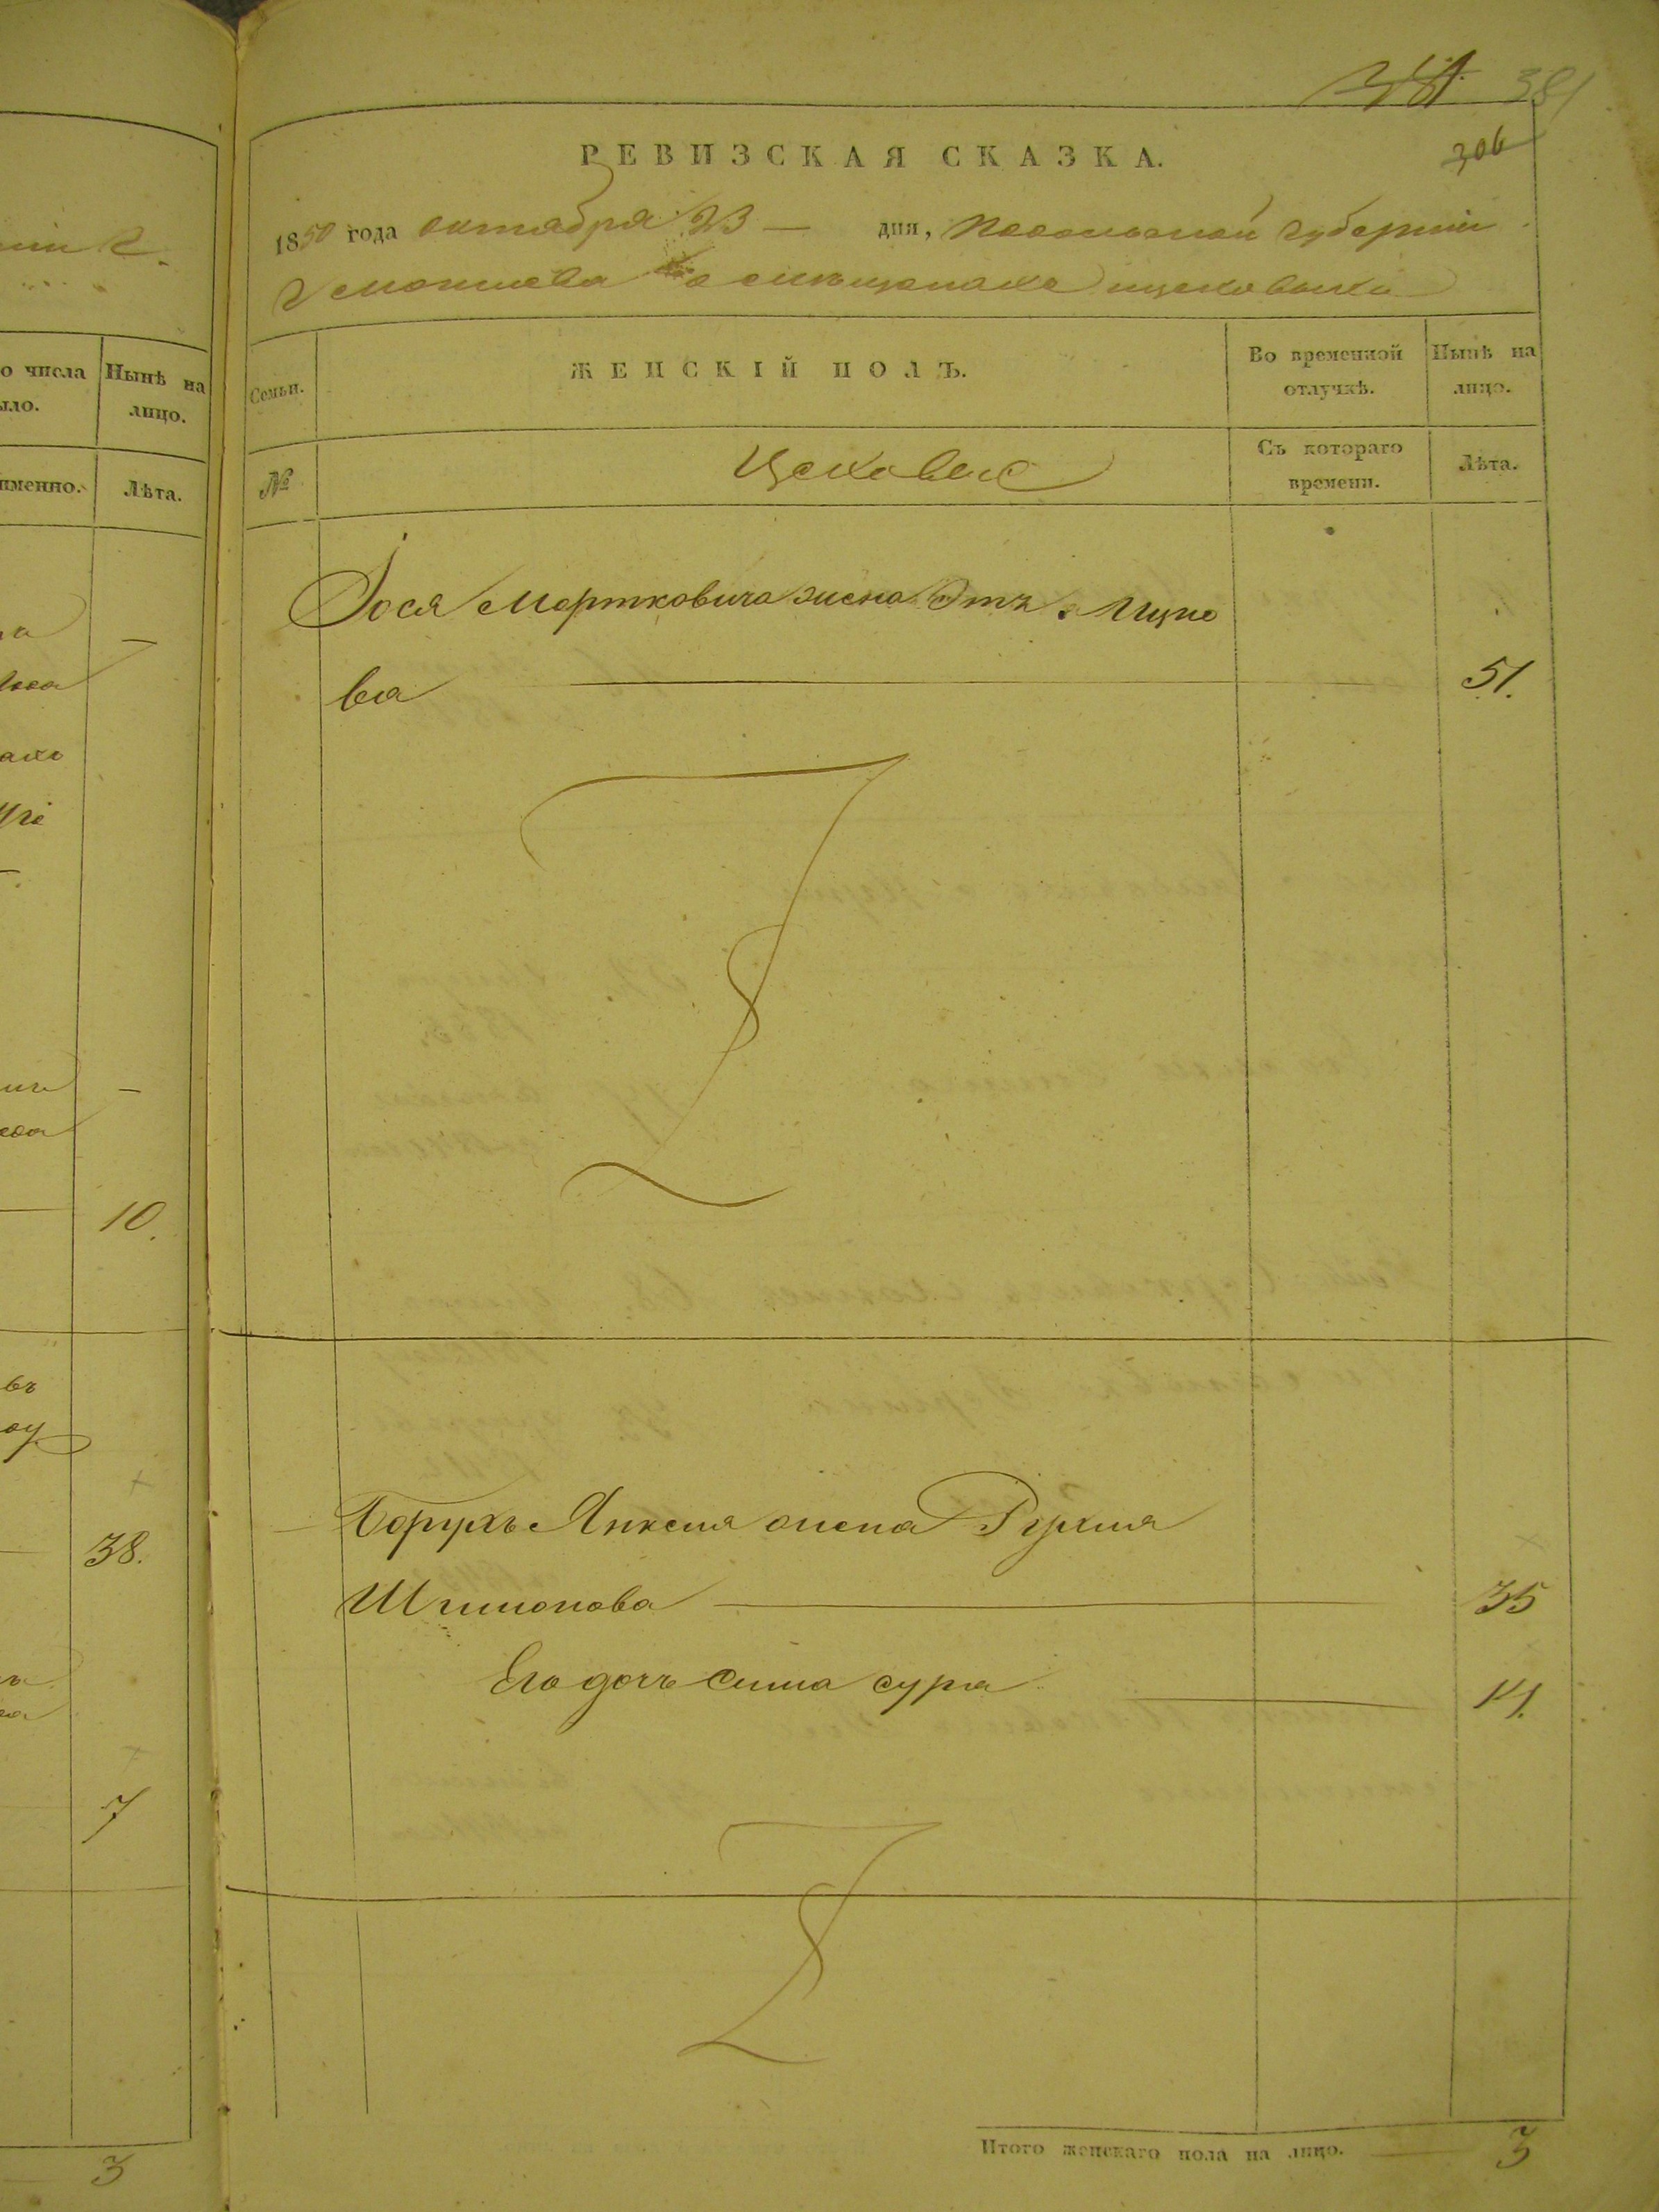 381
306
РЕВИЗСКАЯ СКАЗКА.
1850 года октября 23 — дня, Подольской губерніи
г. Могилева о мѣщанахъ цеховыхъ
Семьи.
ЖЕНСКІЙ ПОЛЪ.
Во временной отлучкѣ.
Нынѣ на лицо.
№
Цеховые
Съ котораго времени.
Лѣта.
Іося Мортковича жена Этя Ицко
ва 51.
Борухъ Янкеля жена Рухля
Шимонова 35
Его дочь Сима сура 14.
Итого женскаго пола на лицо. 3
о числа
ыло.
Нынѣ на
лицо.
именно.
Лѣта.
10.
38.
7
3